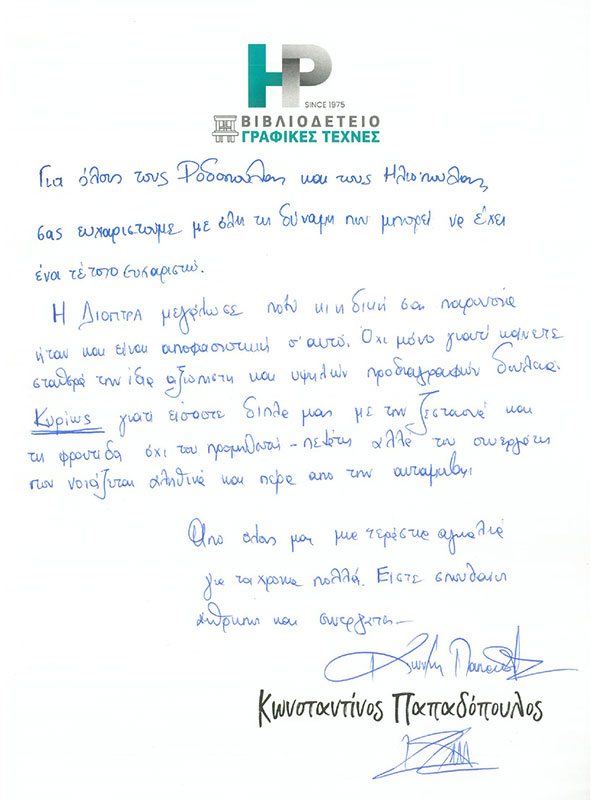 HP
SINCE 1975
ΒΙΒΛΙΟΔΕΤΕΙΟ
ΓΡΑΦΙΚΕΣ ΤΕΧΝΕΣ
Για όλους τους Ροδόπουλους και τους Ηλιόπουλους
σας ευχαριστούμε με όλη τη δύναμη που μπορεί να έχει
ένα τέτοιο ευχαριστώ.
Η ΔΙΟΠΤΡΑ μεγάλωσε πολύ κι η δική σας παρουσία
ήταν και είναι αποφασιστική σ'αυτό. Όχι μόνο γιατί κάνετε
σταθερά την ίδια αξιόπιστη και υψηλών προδιαγραφών δουλειά.
Κυρίως γιατί είσαστε δίπλα μας με την ζεστασιά και
τη φροντίδα όχι του προμηθευτή - πελάτη αλλά του συνεργάτη
που νοιάζεται αληθινά και πέρα απο την ανταμοιβή
Απο όλους μας μια τεράστια αγκαλιά
για τα χρόνια πολλά. Είστε σπουδαίοι
άνθρωποι και συνεργάτες
Κωνσταντίνος Παπαδόπουλος